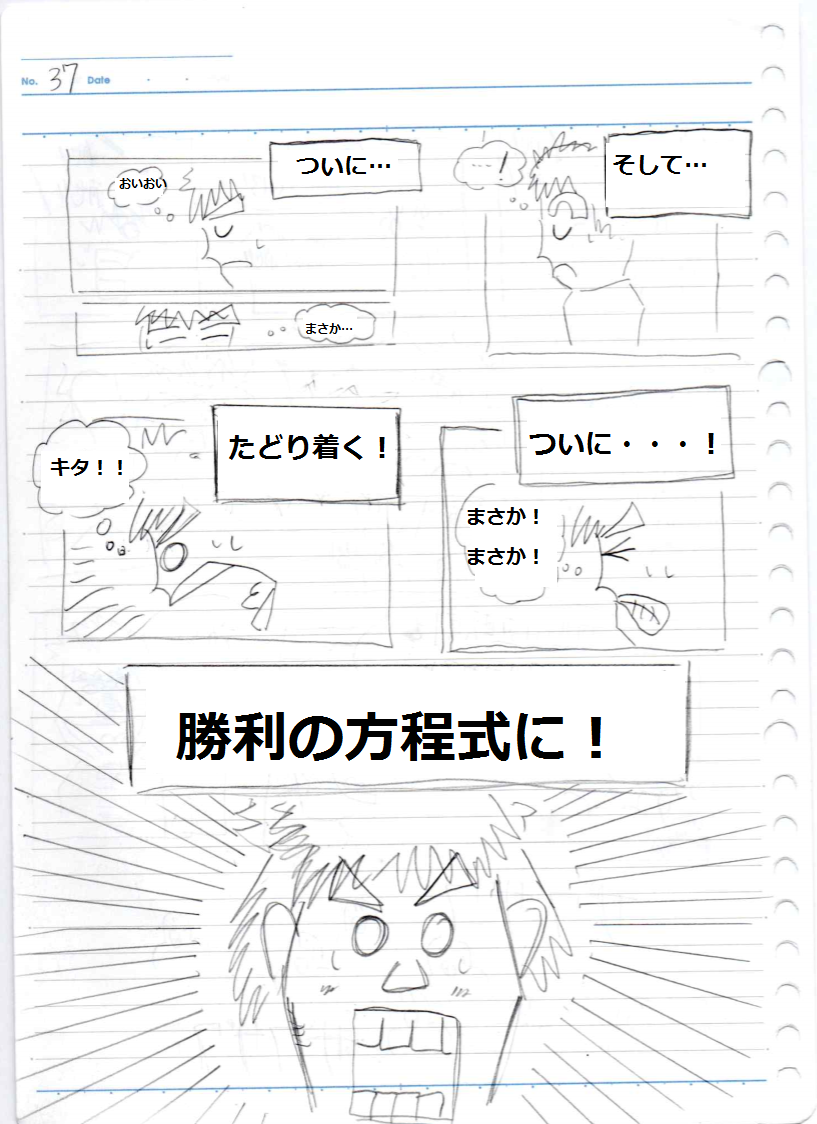 No. 37 Date
そして…
…!
ついに…
おいおい
まさか…
ついに・・・！
まさか！
まさか！
たどり着く！
キタ！！
勝利の方程式に！